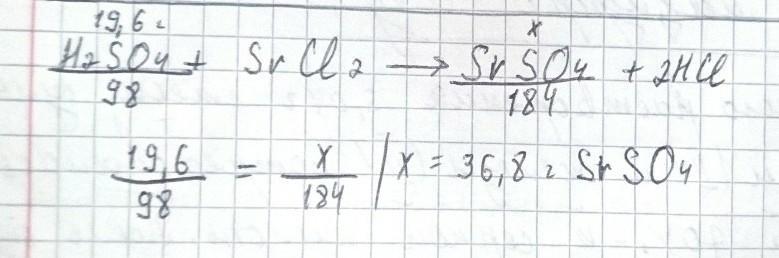 19,6 г x
H2SO4 + SrCl2 → SrSO4 + 2HCl
98 184
19,6/98 = x/184 | x = 36,8 г SrSO4